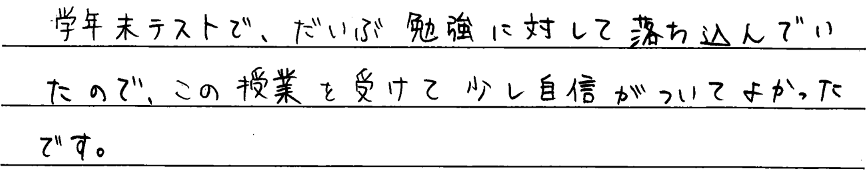 学年末テストで、だいぶ勉強に対して落ち込んでい
たので、この授業を受けて少し自信がついてよかった
です。